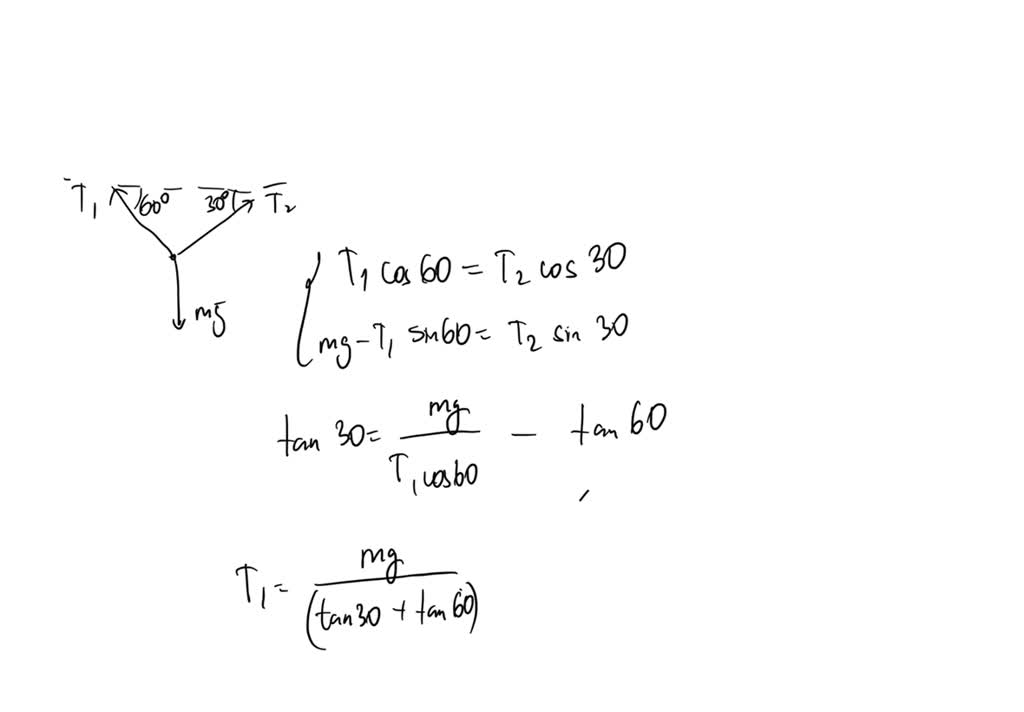 T₁ 60° 30° T₂
mg
T₁ cos 60 = T₂ cos 30
mg - T₁ sin 60 = T₂ sin 30
tan 30 = mg / T₁ cos 60 - tan 60
T₁ = mg / (tan 30 + tan 60)